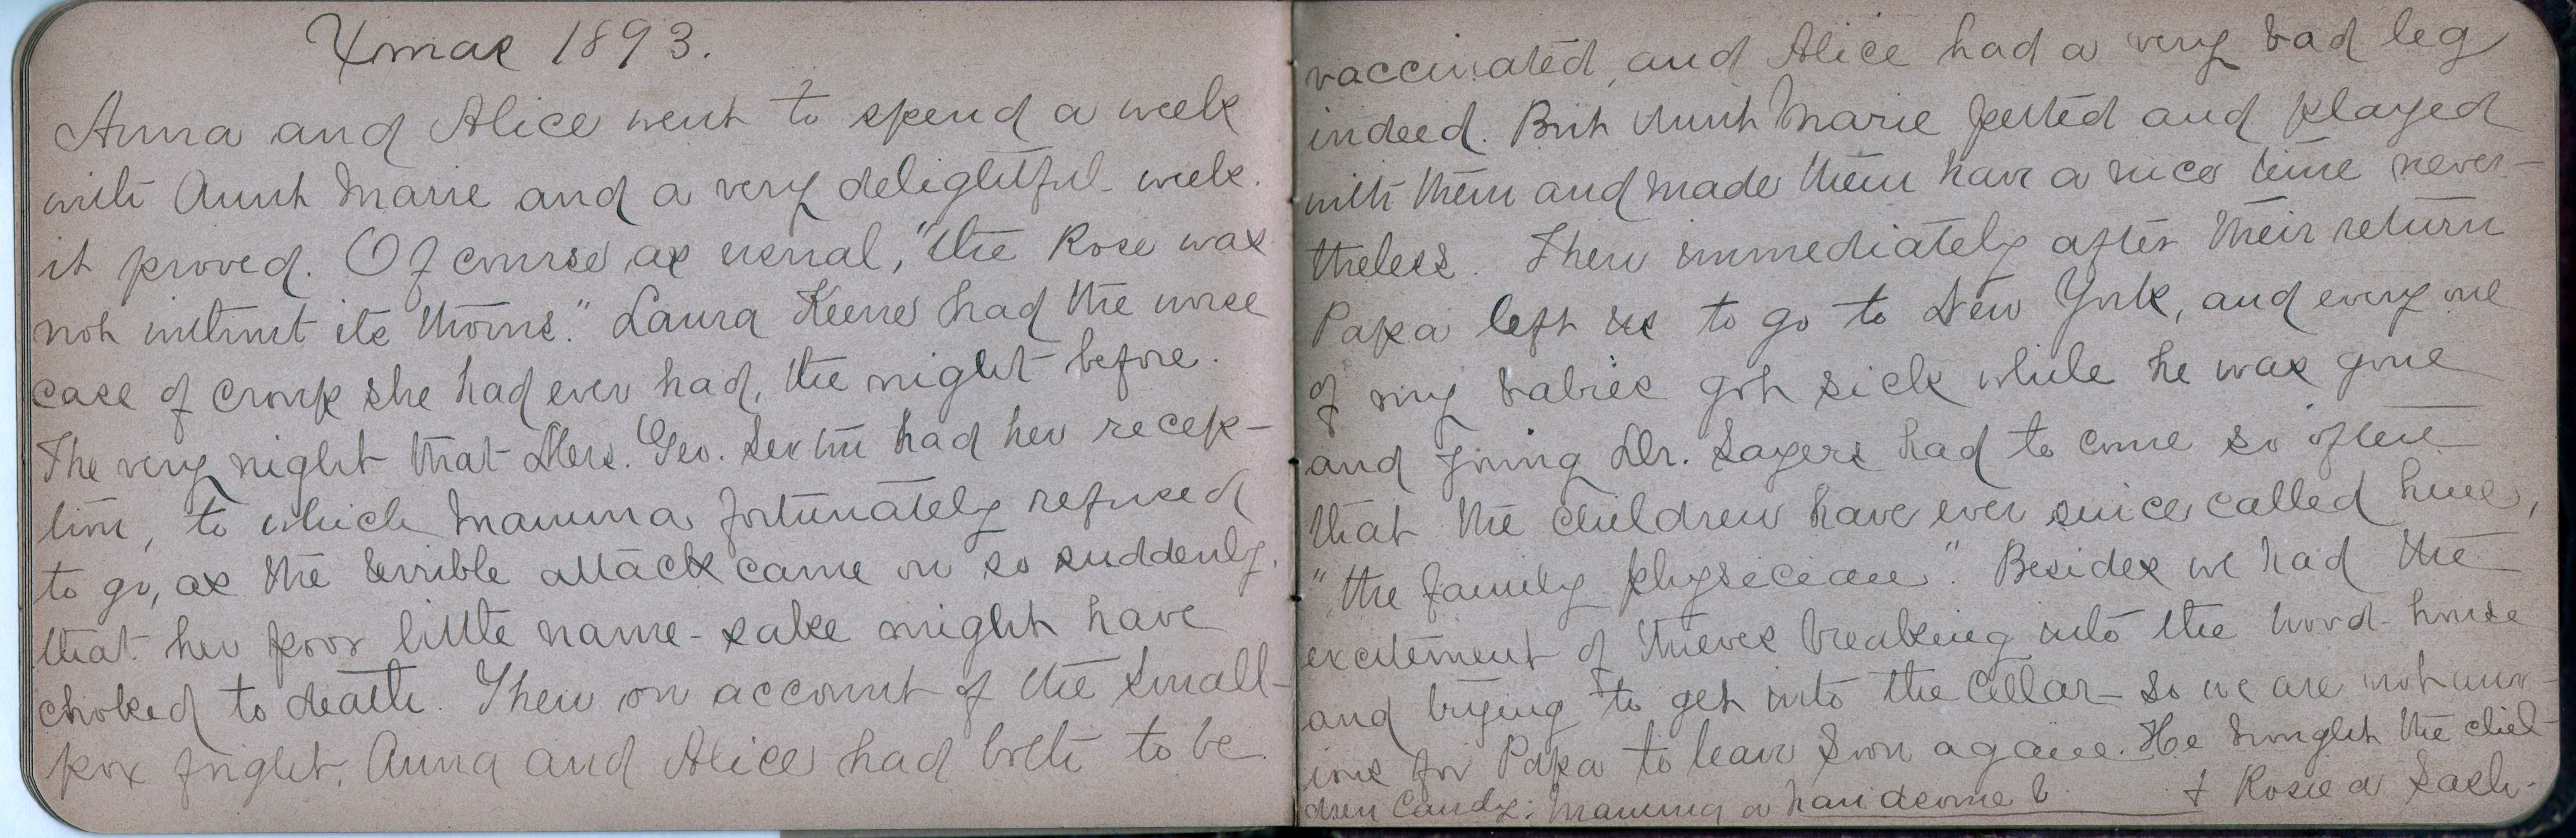 Xmas 1893.
Anna and Alice went to spend a week
with Aunt Marie and a very delightful week
it proved. Of course as usual, "the Rose was
not without its thorns." Laura Keene had the worse
case of croup she had ever had, the night before.
The very night that Mrs. Geo. had her recep-
tion, to which Mamma fortunately refused
to go, as the terrible attack came on so suddenly,
that her poor little name-sake might have
choked to death. Then on account of the small-
pox fright, Anna and Alice had both to be
vaccinated, and Alice had a very bad leg
indeed. But Aunt Marie petted and played
with them and made them have a nice time never-
theless. Then immediately after their return
Papa left us to go to New York, and every one
of my babies got sick while he was gone
and young Dr. Sayers had to come so often
that the children have ever since called him,
"the family physician". Besides we had the
excitement of thieves breaking into the wood-house
and trying to get into the Cellar - so we are not anx-
ious for Papa to leave soon again. He brought the chil-
dren Candy; Mamma a handsome & Rosie a Sash.